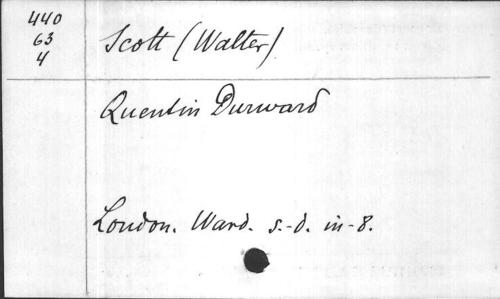 440
63
4
Scott (Walter)
Quentin Durward
London. Ward. s.-d. in-8.